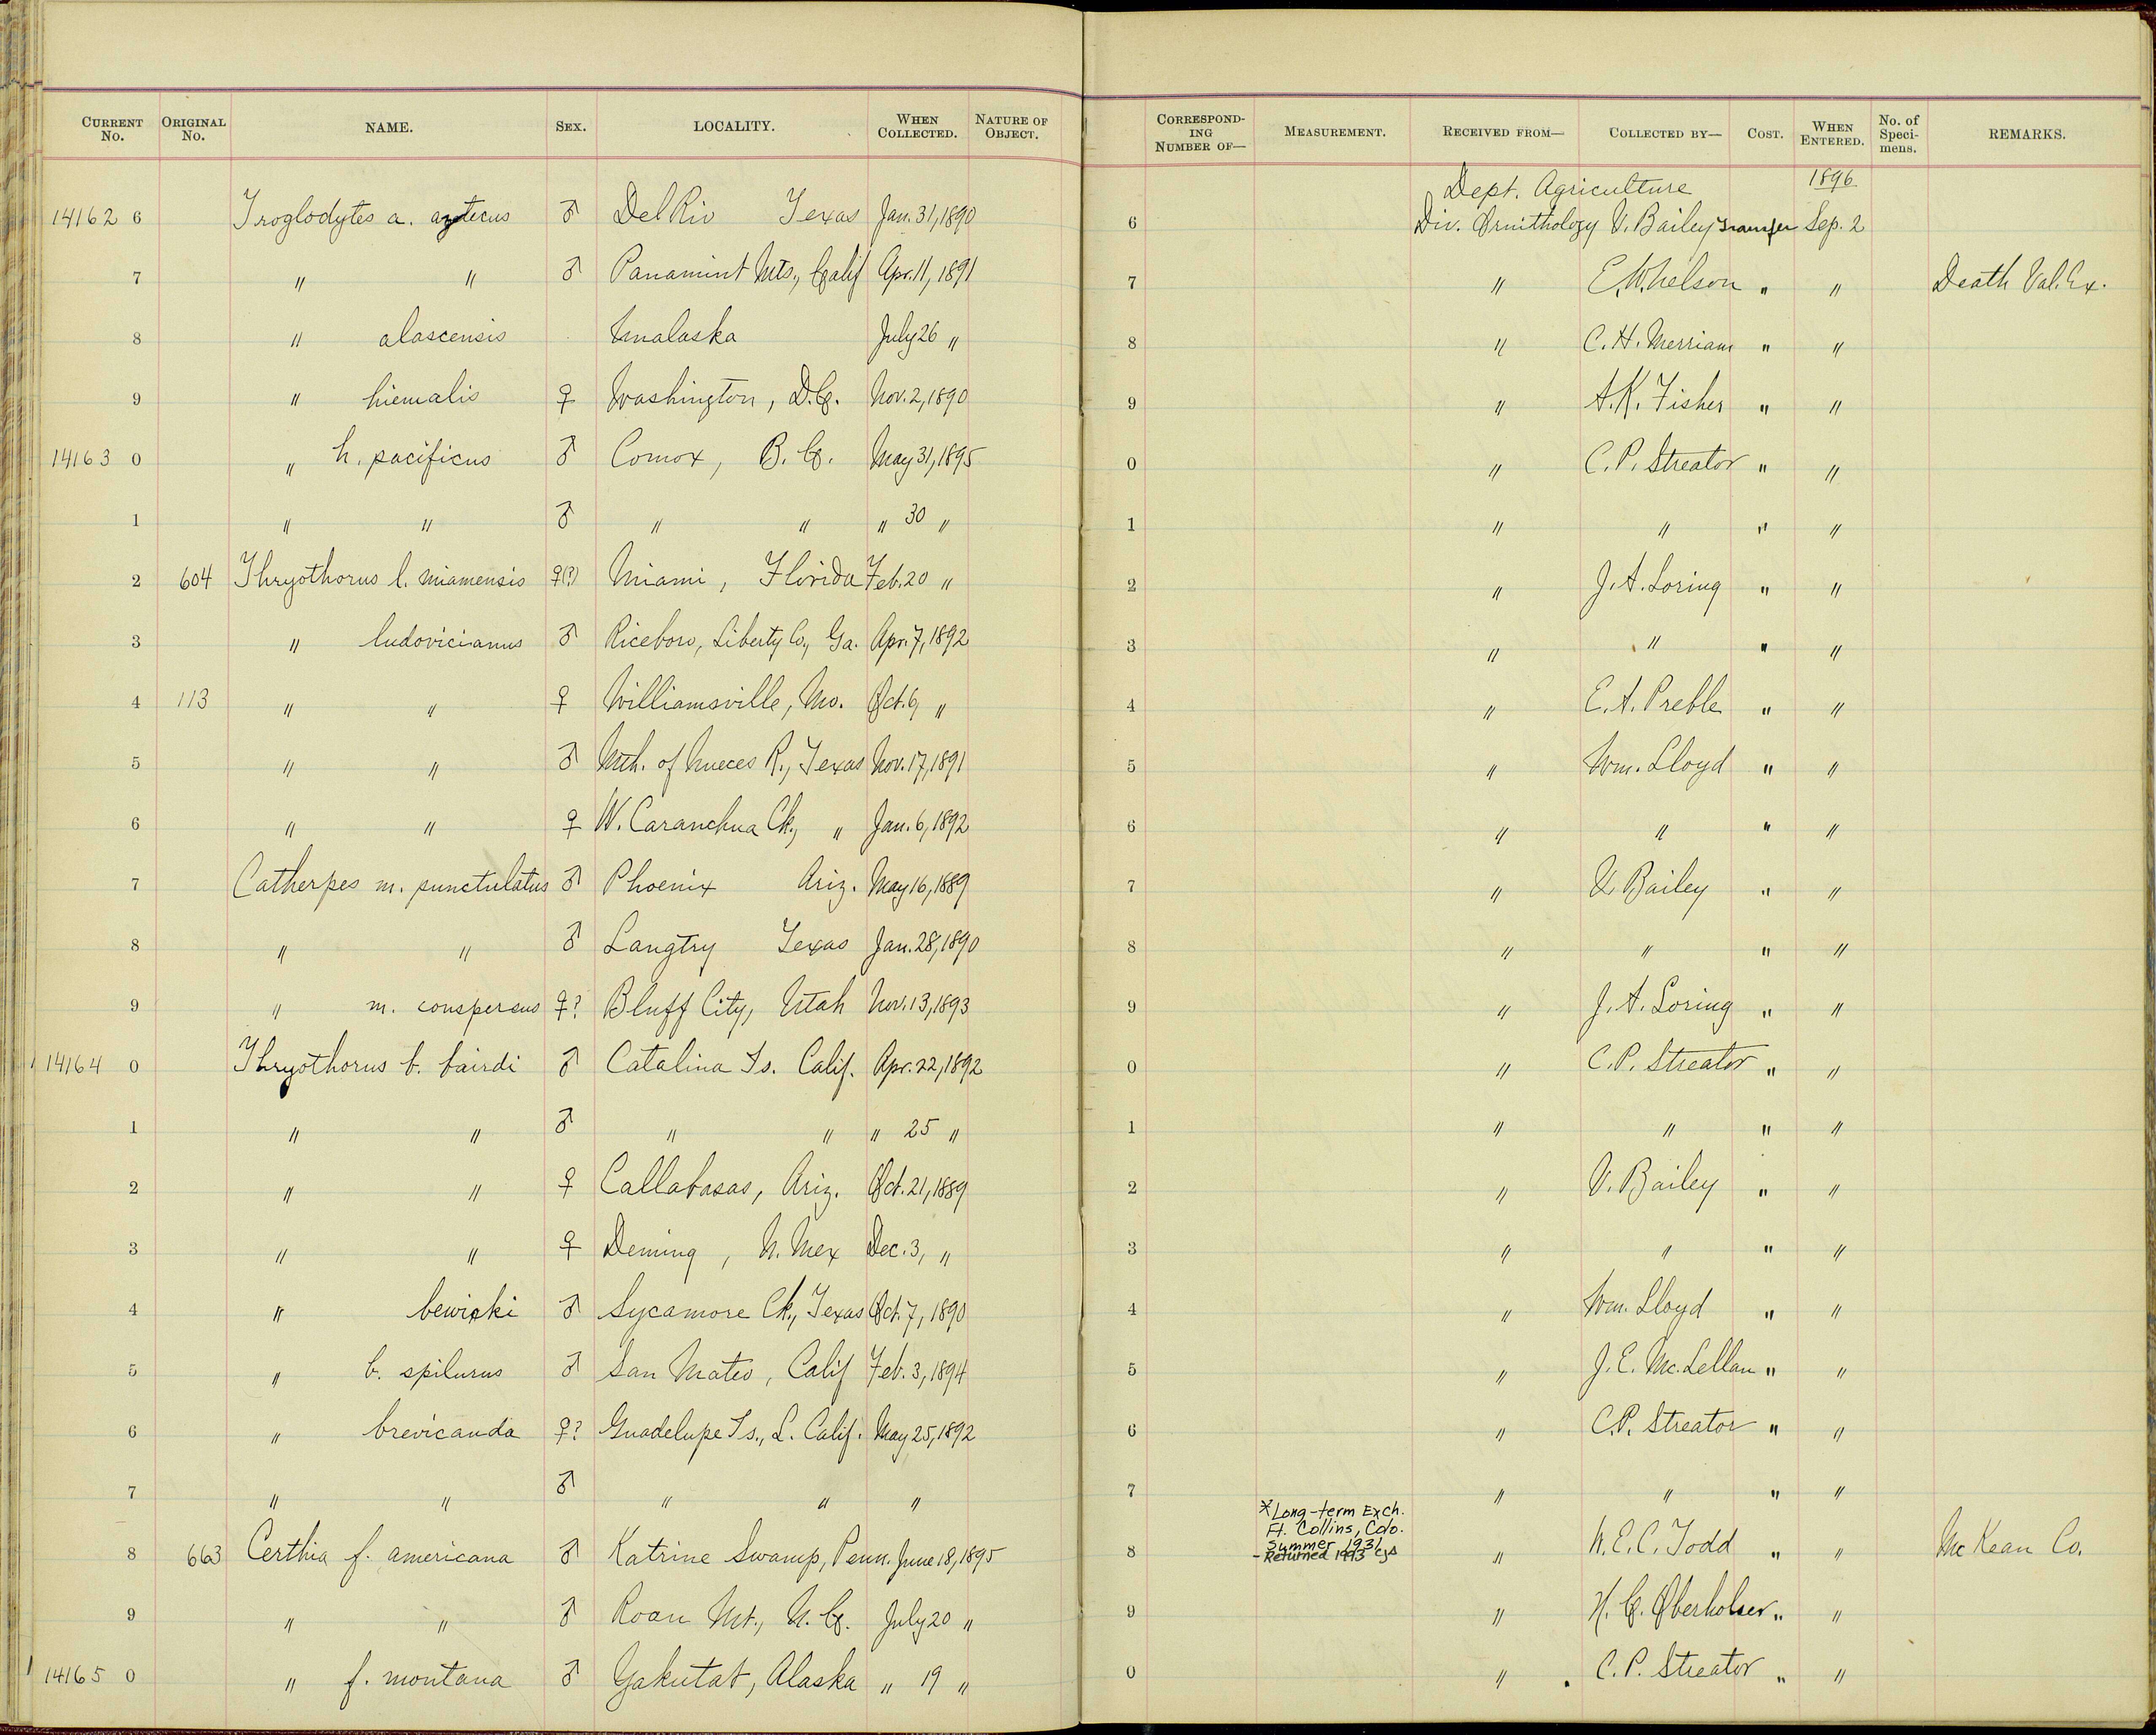 CURRENT No. ORIGINAL No. NAME. SEX. LOCALITY. WHEN COLLECTED. NATURE OF OBJECT. CORRESPONDING NUMBER OF— MEASUREMENT. RECEIVED FROM— COLLECTED BY— COST. WHEN ENTERED. No. of Specimens. REMARKS.
Dept. Agriculture 1896
14162 6 Troglodytes a. aztecus ♂ Del Rio Texas Jan. 31, 1890 6 Div. Ornithology V. Bailey Transfer Sep. 2
7 " " ♂ Panamint Mts., Calif Apr. 11, 1891 7 " E. W. Nelson " " Death Val. Ex.
8 " alascensis Unalaska July 26 " 8 " C. H. Merriam " "
9 " hiemalis ♀ Washington, D.C. Nov. 2, 1890 9 " A. K. Fisher " "
14163 0 " h. pacificus ♂ Comox, B. C. May 31, 1895 0 " C. P. Streator " "
1 " " ♂ " " " 30 " 1 " " " "
2 604 Thryothorus l. miamensis ♀(?) Miami, Florida Feb. 20 " 2 " J. A. Loring " "
3 " ludovicianus ♂ Riceboro, Liberty Co., Ga. Apr. 7, 1892 3 " " " "
4 113 " " ♀ Williamsville, Mo. Oct. 6 " 4 " E. A. Preble " "
5 " " ♂ Mth. of Nueces R., Texas Nov. 17, 1891 5 " Wm. Lloyd " "
6 " " ♀ W. Caranchua Ck., " Jan. 6, 1892 6 " " " "
7 Catherpes m. punctulatus ♂ Phoenix Ariz. May 16, 1889 7 " V. Bailey " "
8 " " ♂ Langtry Texas Jan. 28, 1890 8 " " " "
9 " m. conspersus ♀? Bluff City, Utah Nov. 13, 1893 9 " J. A. Loring " "
14164 0 Thryothorus b. bairdi ♂ Catalina Is. Calif. Apr. 22, 1892 0 " C. P. Streator " "
1 " " ♂ " " " 25 " 1 " " " "
2 " " ♀ Callabasas, Ariz. Oct. 21, 1889 2 " V. Bailey " "
3 " " ♀ Deming, N. Mex Dec. 3, " 3 " " " "
4 " bewicki ♂ Sycamore Ck., Texas Oct. 7, 1890 4 " Wm. Lloyd " "
5 " b. spilurus ♂ San Mateo, Calif Feb. 3, 1894 5 " J. E. McLellan " "
6 " brevicauda ♀? Guadelupe Is., L. Calif. May 25, 1892 6 " C. P. Streator " "
7 " " ♂ " " " 7 " " " "
*Long-term Exch.
Ft. Collins, Colo.
Summer 1931
- Returned 1993
8 663 Certhia f. americana ♂ Katrine Swamp, Penn. June 18, 1895 8 " W. E. C. Todd " " McKean Co.
9 " " ♂ Roan Mt., N. C. July 20 " 9 " H. C. Oberholser " "
14165 0 " f. montana ♂ Yakutat, Alaska " 19 " 0 " C. P. Streator " "